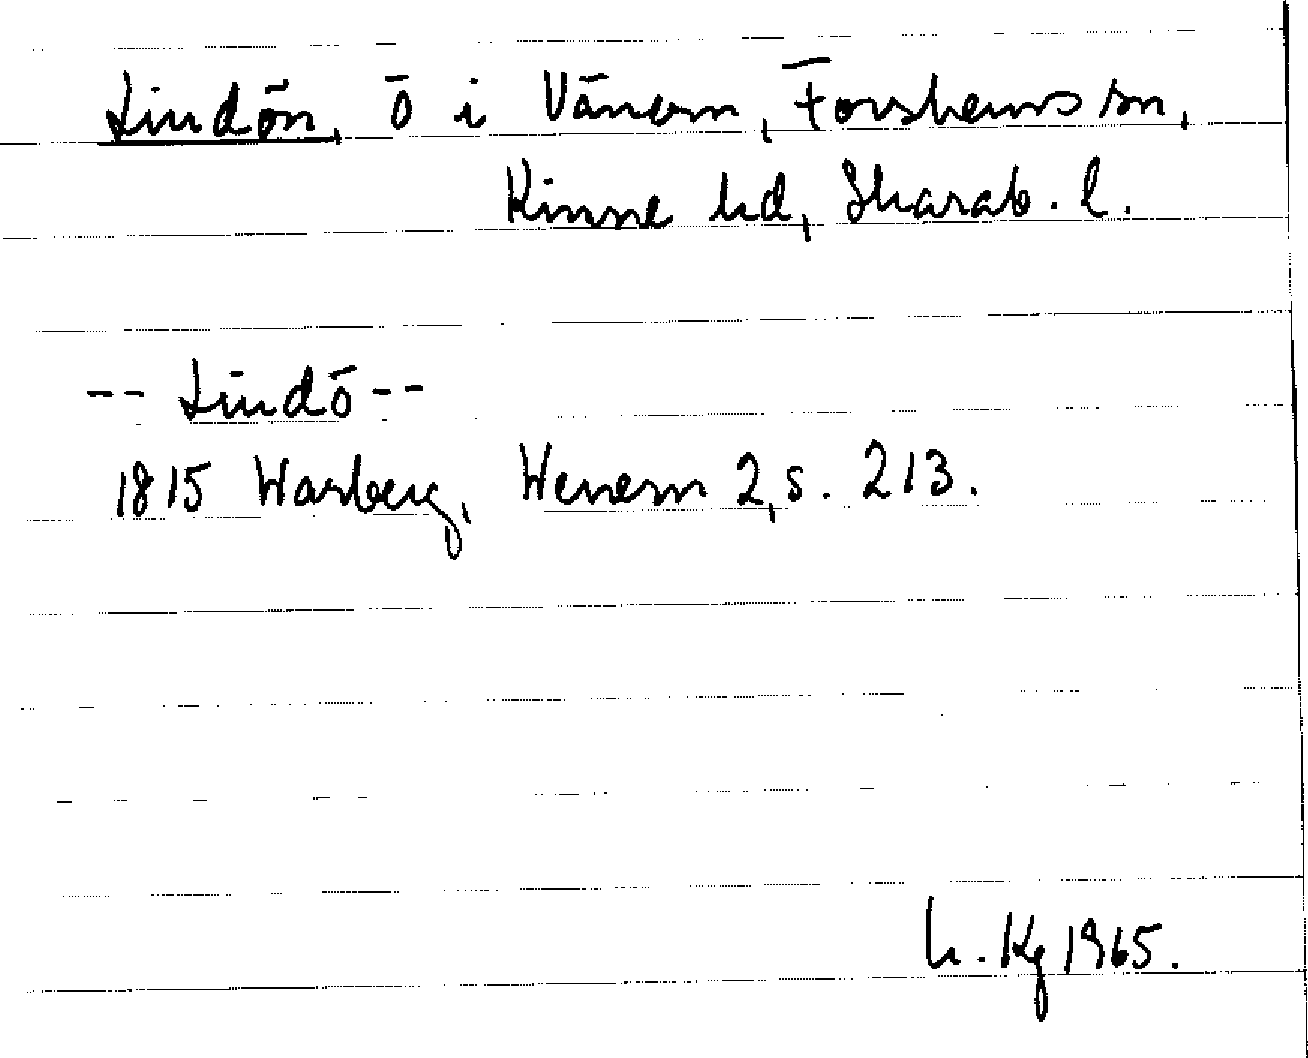 Lindön, ö i Vänern, Forshems sn,
Kinne hd, Skarab. l.
-- Lindö --
1815 Warberg, Wenern 2, s. 213.
h. Kg 1965.